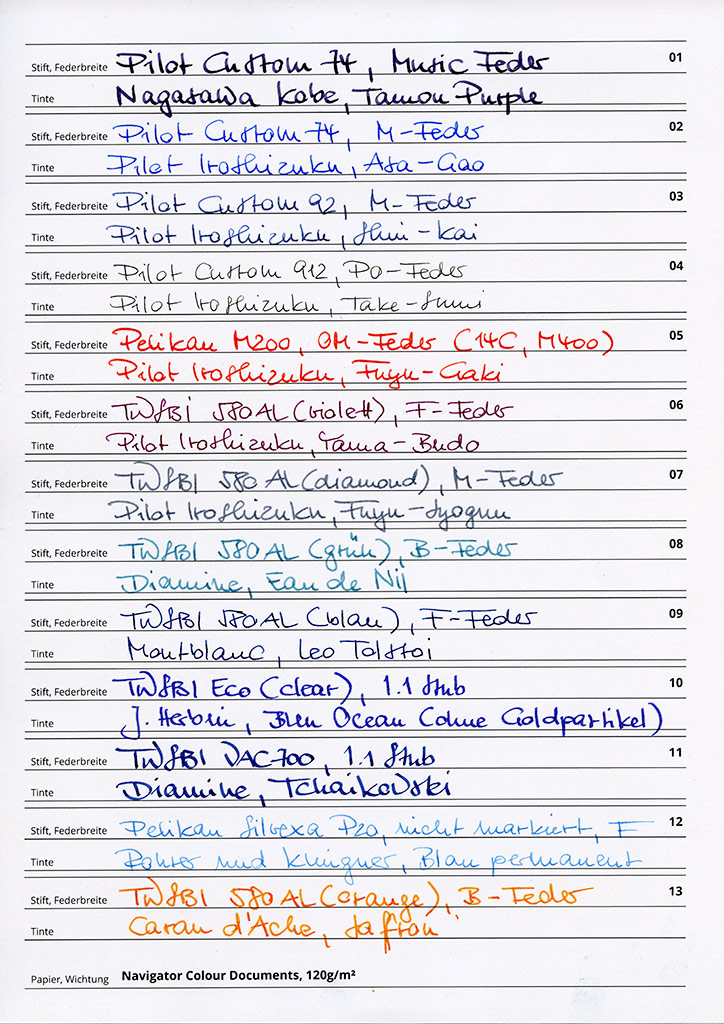 Stift, Federbreite Pilot Custom 74, Music Feder 01
Tinte Nagasawa Kobe, Tamon Purple
Stift, Federbreite Pilot Custom 74, M-Feder 02
Tinte Pilot Iroshizuku, Asa-Gao
Stift, Federbreite Pilot Custom 92, M-Feder 03
Tinte Pilot Iroshizuku, Shin-Kai
Stift, Federbreite Pilot Custom 912, PO-Feder 04
Tinte Pilot Iroshizuku, Take-Sumi
Stift, Federbreite Pelikan M200, OM-Feder (14C, M400) 05
Tinte Pilot Iroshizuku, Fuyu-Gaki
Stift, Federbreite TWSBI 580AL (violett), F-Feder 06
Tinte Pilot Iroshizuku, Yama-Budo
Stift, Federbreite TWSBI 580 AL (diamond), M-Feder 07
Tinte Pilot Iroshizuku, Fuyu-Syogun
Stift, Federbreite TWSBI 580AL (grün), B-Feder 08
Tinte Diamine, Eau de Nil
Stift, Federbreite TWSBI 580AL (blau), F-Feder 09
Tinte Montblanc, Leo Tolstoi
Stift, Federbreite TWSBI Eco (clear), 1.1 Stub 10
Tinte J. Herbin, Bleu Ocean (ohne Goldpartikel)
Stift, Federbreite TWSBI VAC700, 1.1 Stub 11
Tinte Diamine, Tchaikovski
Stift, Federbreite Pelikan Silvexa P20, nicht markiert, F 12
Tinte Rohrer und Klingner, Blau permanent
Stift, Federbreite TWSBI 580AL (orange), B-Feder 13
Tinte Caran d'Ache, Saffron
Papier, Wichtung Navigator Colour Documents, 120g/m²